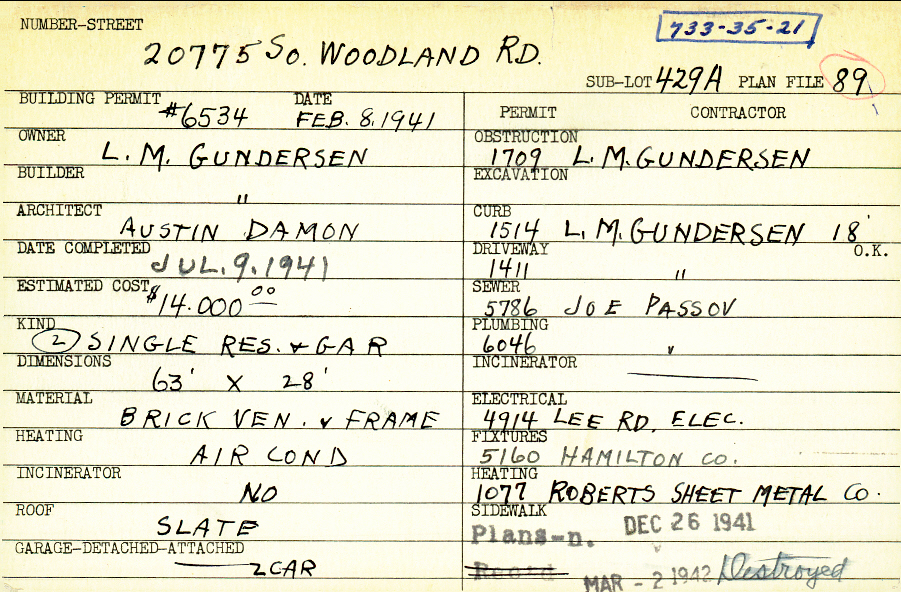 NUMBER-STREET
733-35-21
20775 So. WOODLAND RD.
SUB-LOT 429A PLAN FILE 89
BUILDING PERMIT #6534 DATE FEB. 8. 1941
OWNER L. M. GUNDERSEN
BUILDER "
ARCHITECT AUSTIN DAMON
DATE COMPLETED JUL. 9. 1941
ESTIMATED COST $14.000 00
KIND 2 SINGLE RES. & GAR
DIMENSIONS 63' X 28'
MATERIAL BRICK VEN. & FRAME
HEATING AIR COND
INCINERATOR NO
ROOF SLATE
GARAGE-DETACHED-ATTACHED 2 CAR
PERMIT CONTRACTOR
OBSTRUCTION 1709 L. M. GUNDERSEN
EXCAVATION
CURB 1514 L. M. GUNDERSEN 18'
DRIVEWAY 1411 " O.K.
SEWER 5786 JOE PASSOV
PLUMBING 6046 "
INCINERATOR
ELECTRICAL 4914 LEE RD. ELEC.
FIXTURES 5160 HAMILTON CO.
HEATING 1077 ROBERTS SHEET METAL CO.
SIDEWALK
Plans-n. DEC 26 1941
MAR - 2 1942 Destroyed